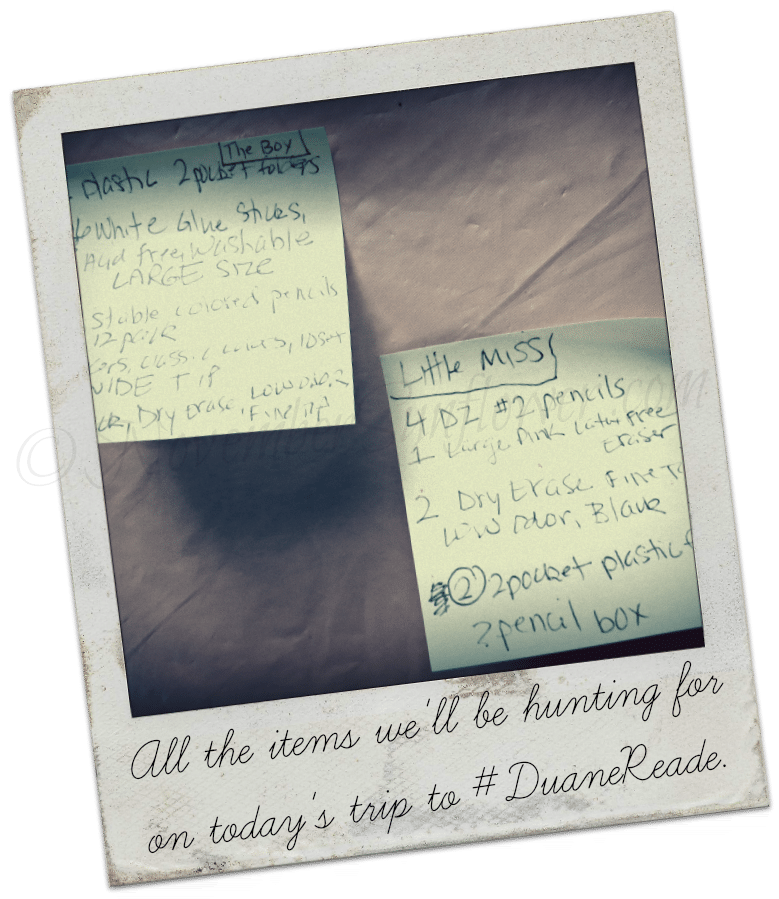 The Box
Plastic 2 pocket folders
6 White Glue Sticks,
Acid free, Washable
LARGE Size
stable colored pencils
12 pack
classic colors, 10 set
WIDE TIP
Dry Erase, Low odor, 2
Fine tip
Little Miss
4 DZ #2 pencils
1 Large Pink Latex Free
Eraser
2 Dry Erase Fine
Low odor, Black
2 2 pocket plastic
? pencil box
© November Sunflower.com
All the items we'll be hunting for
on today's trip to #DuaneReade.